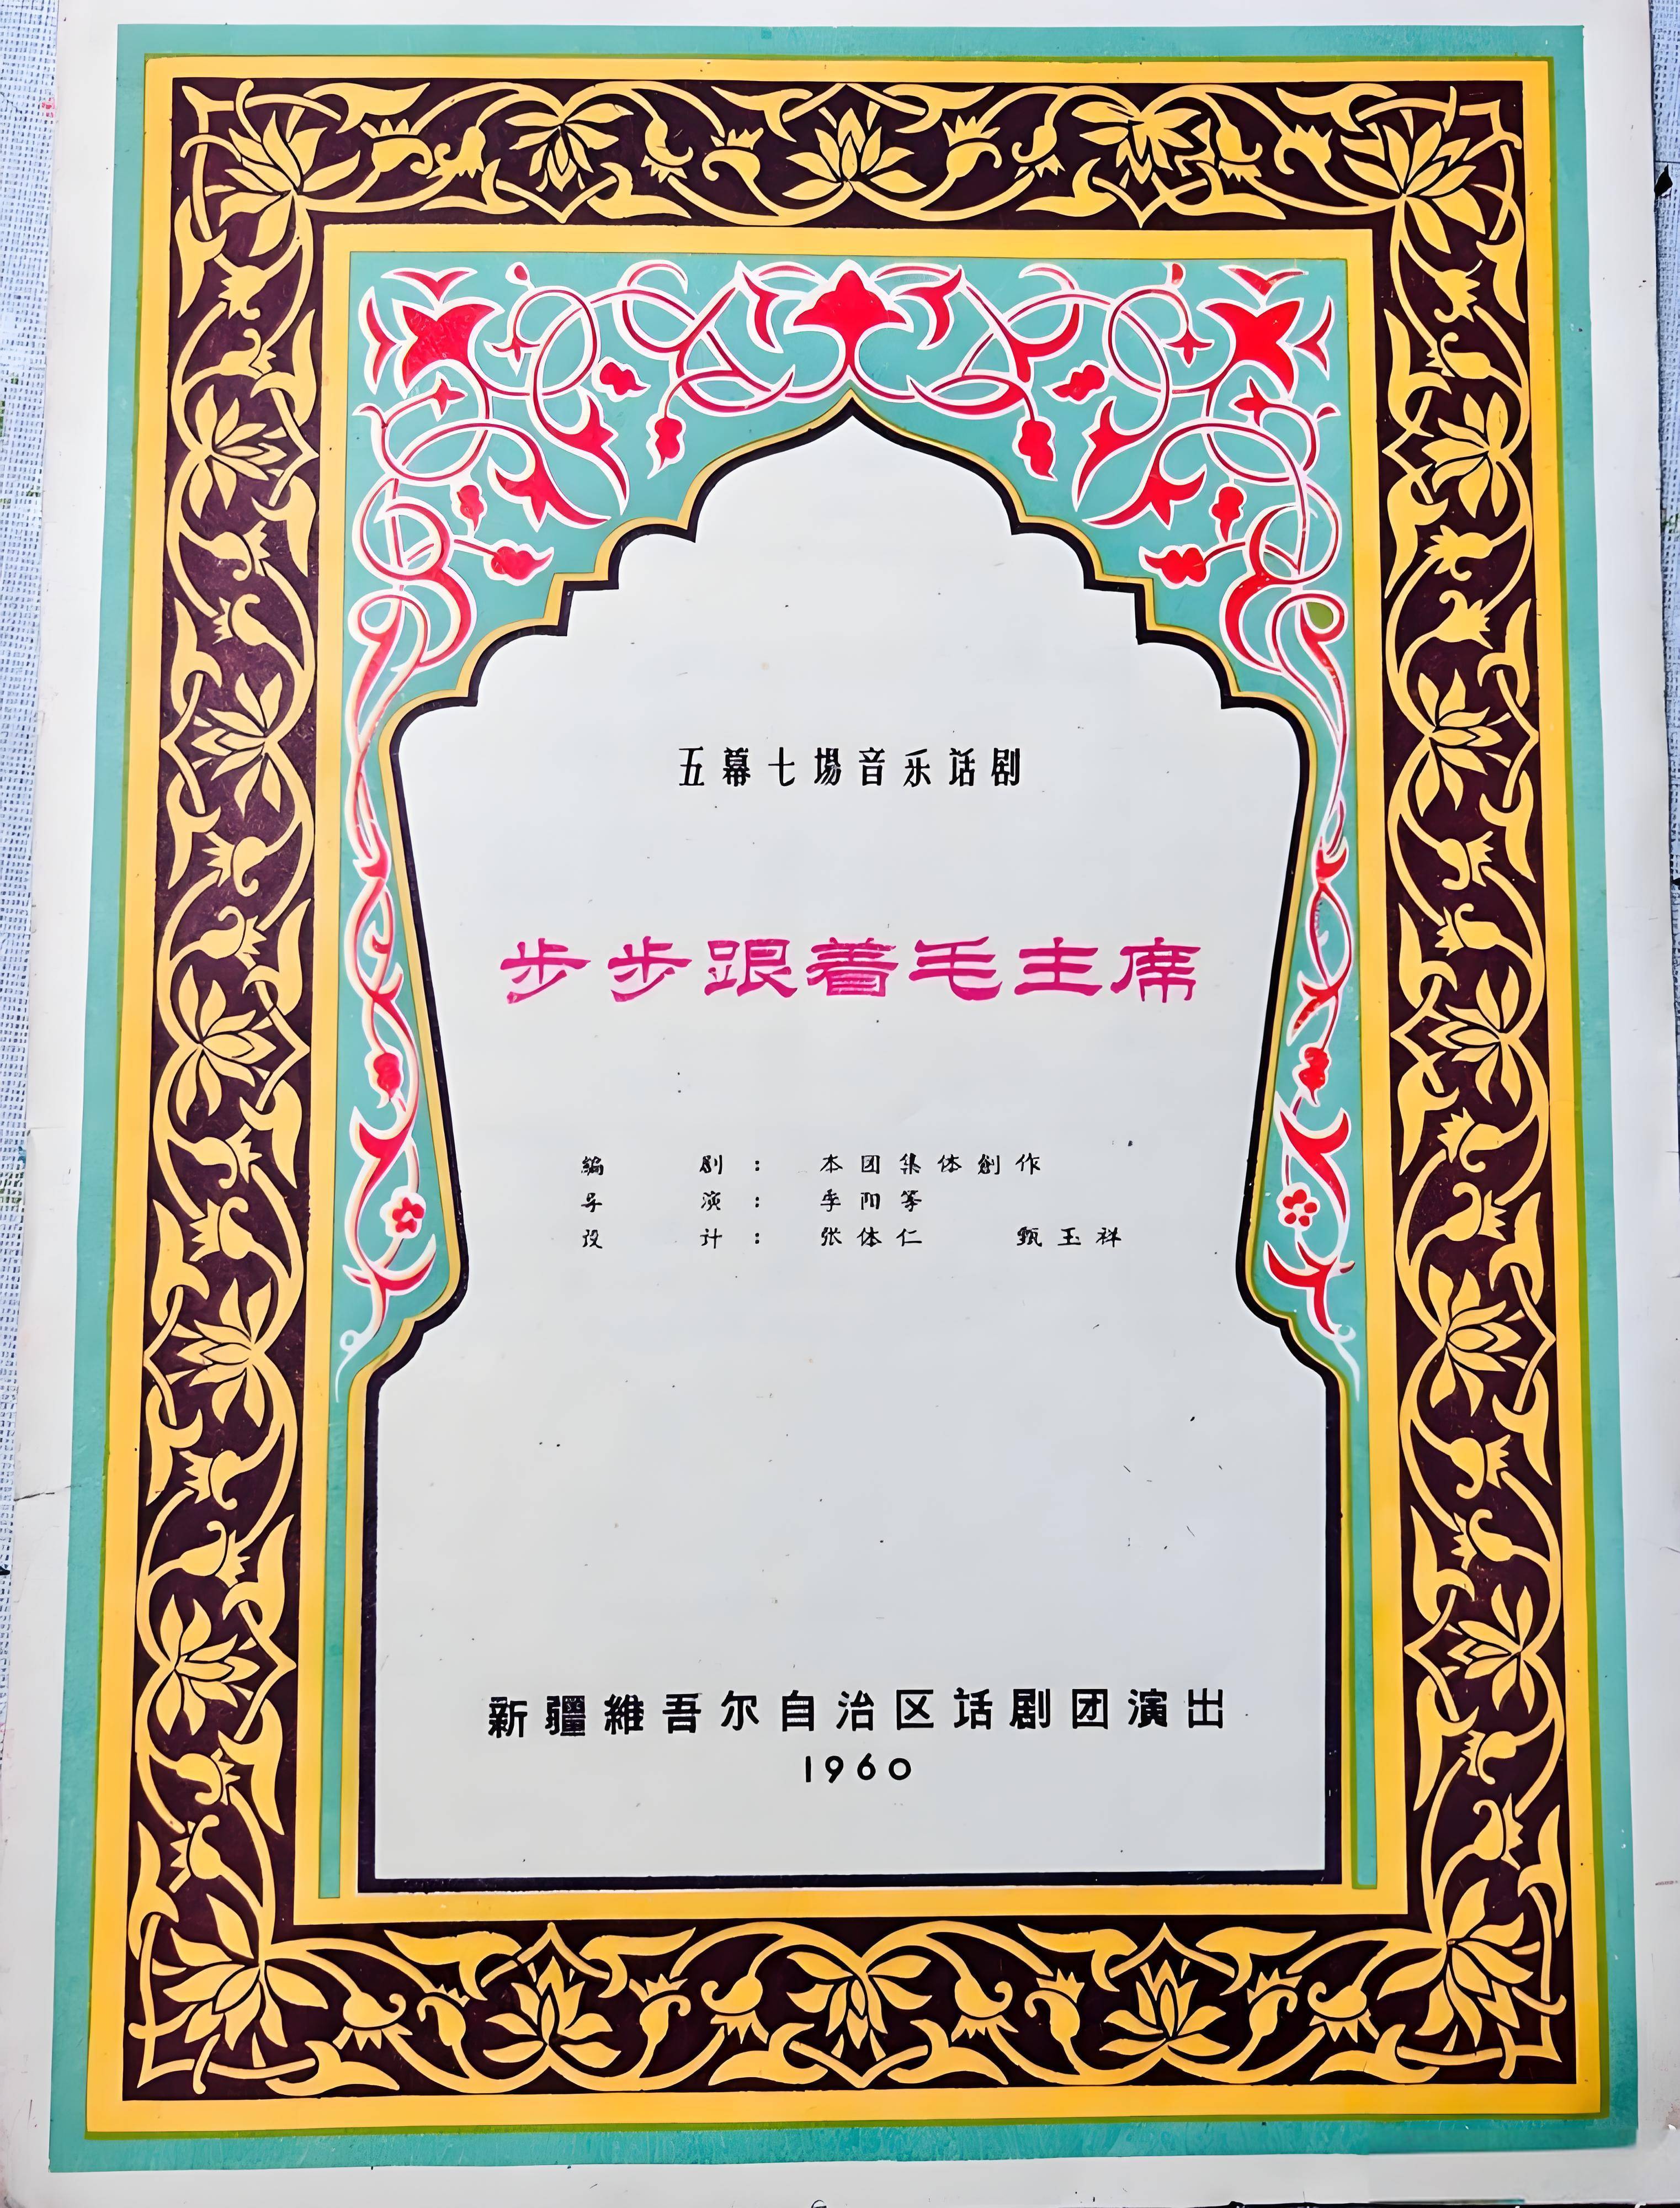 五幕七場音乐话剧
步步跟着毛主席
編 剧： 本团集体創作
导 演： 季阳等
设 计： 张体仁 甄玉祥
新疆維吾尔自治区话剧团演出
1960